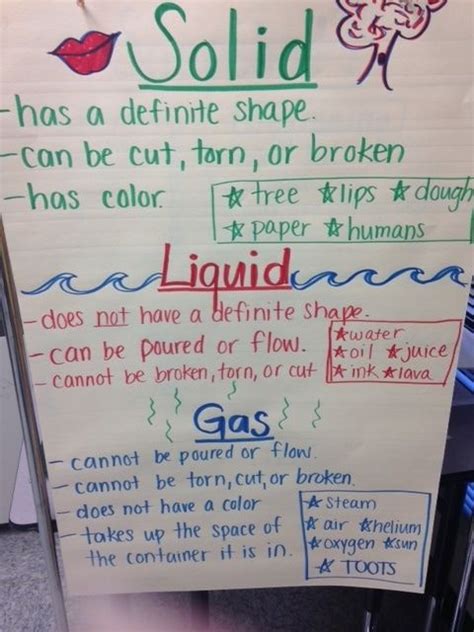 Solid
-has a definite shape.
-can be cut, torn, or broken
-has color.
☆tree ☆lips ☆dough
☆paper ☆humans
Liquid
-does not have a definite shape.
-can be poured or flow.
-cannot be broken, torn, or cut
☆water
☆oil ☆juice
☆ink ☆lava
Gas
-cannot be poured or flow.
-cannot be torn, cut, or broken.
-does not have a color
-takes up the space of
the container it is in.
☆Steam
☆air ☆helium
☆oxygen ☆sun
☆TOOTS